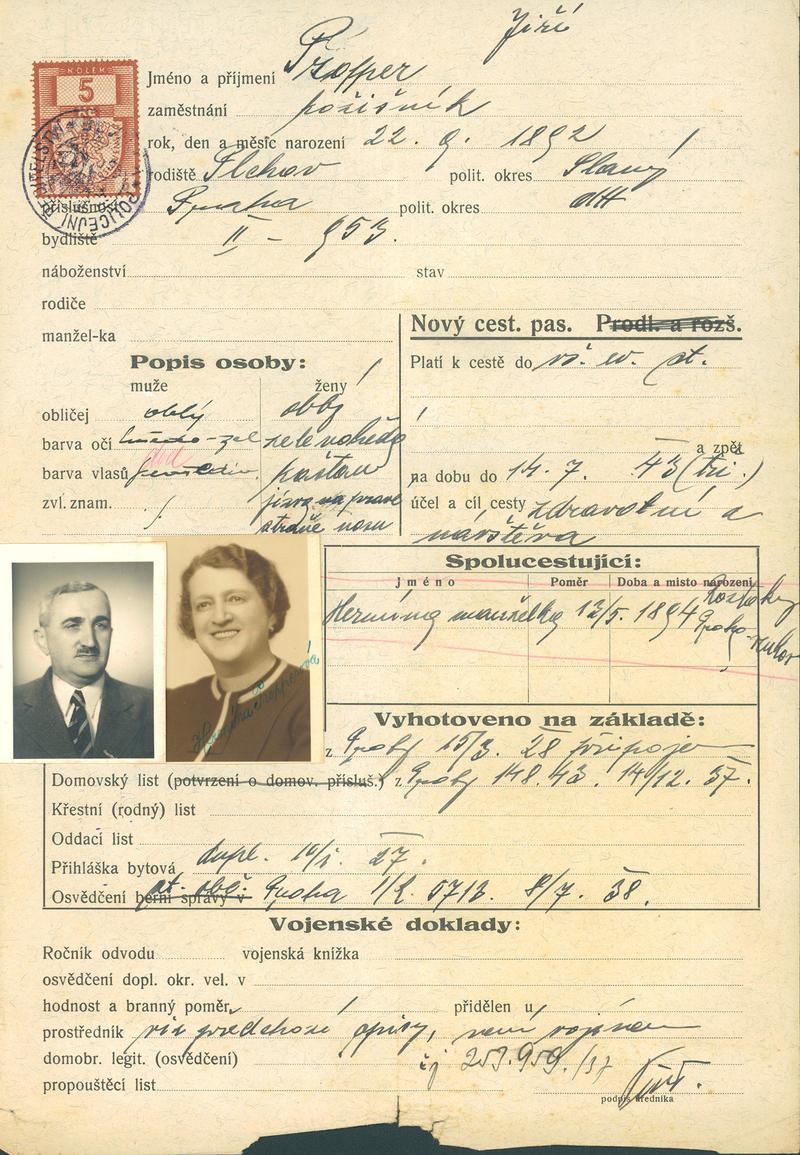 Jiří
KOLEK
5
Jméno a příjmení Propper
zaměstnání
rok, den a měsíc narození 22. 9. 1892
rodiště polit. okres Slaný
příslušnost Praha polit. okres dtt
bydliště II – 953.
náboženství stav
rodiče
manžel-ka
Nový cest. pas. Prodl. a rozš.
Popis osoby:
muže ženy
obličej oblý oblý
barva očí
barva vlasů kaštan
zvl. znam. jizva na pravé
straně nosu
Platí k cestě do vš. ev. st.
a zpět
na dobu do 14. 7. 43 (tři.)
účel a cíl cesty zdravotní a
návštěva
Spolucestující:
Jméno Poměr Doba a místo narození
Hermína manželka 13/5. 1894
Vyhotoveno na základě:
z Prahy 15/3. 28 připoje
Domovský list (potvrzení o domov. přísluš.) z Prahy 148.43. 14/12. 37.
Křestní (rodný) list
Oddací list
Přihláška bytová dupl. 27.
Osvědčení berní správy v st. obč. Praha 5713. 8/7. 38.
Vojenské doklady:
Ročník odvodu vojenská knížka
osvědčení dopl. okr. vel. v
hodnost a branný poměr přidělen u
prostředník viz předchozí opisy, není vojínem
domobr. legit. (osvědčení) čj 253.959/37
propouštěcí list
podpis úředníka